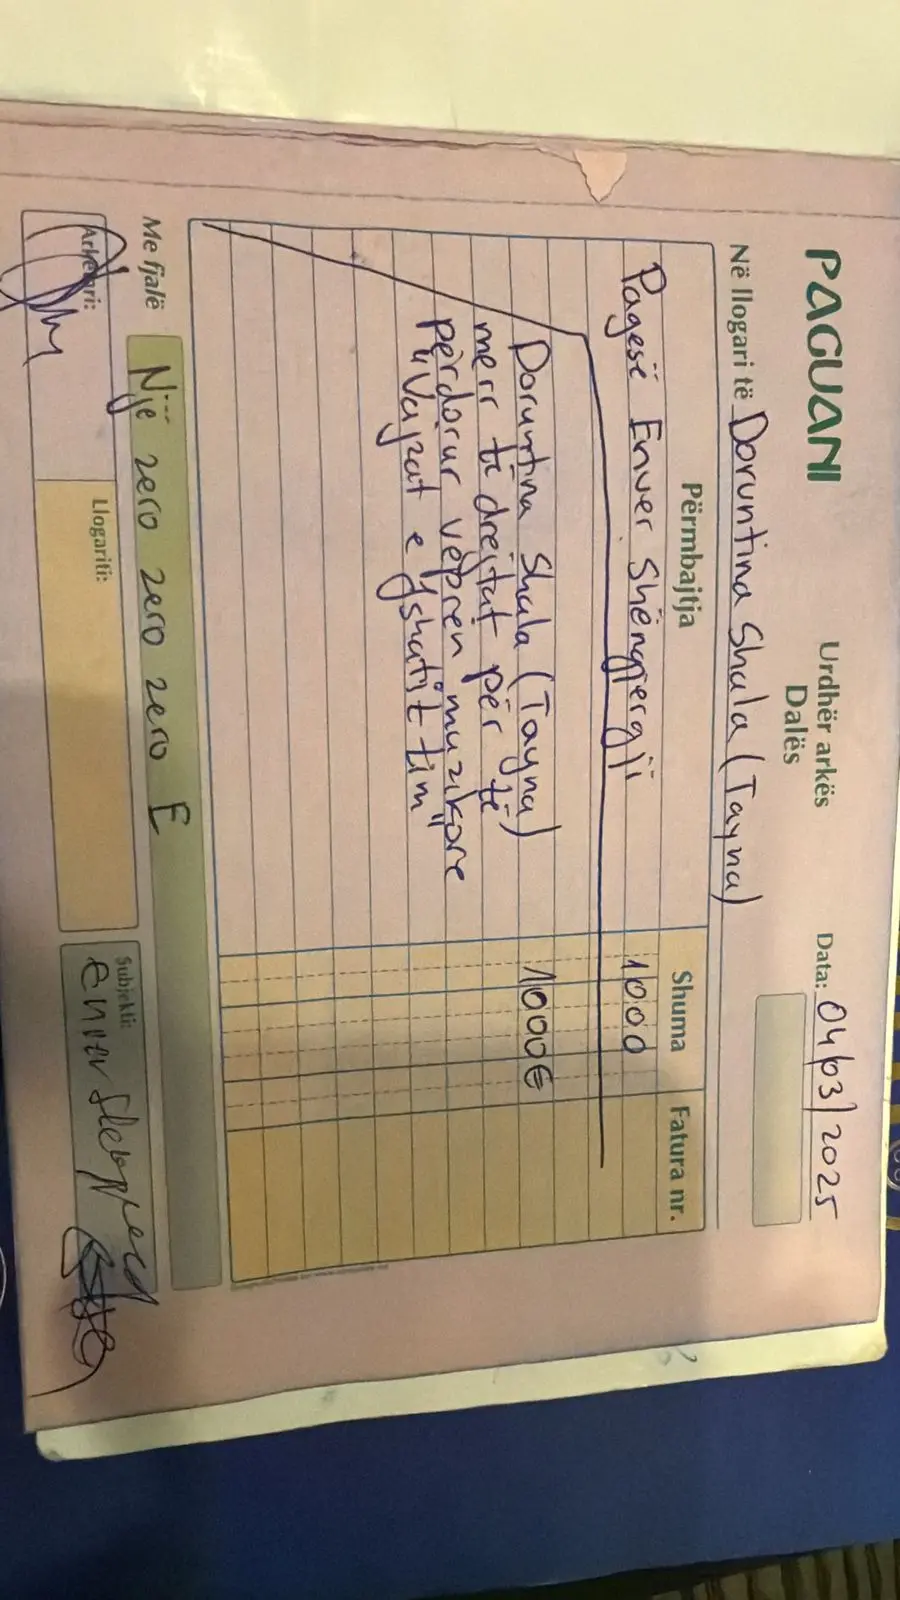 PAGUANI
Urdhër arkës
Dalës
Data: 04/03/2025
Në llogari të Doruntina Shala (Tayna)
Përmbajtja Shuma Fatura nr.
Pagesë Enver Shëngjergji 1000
Doruntina Shala (Tayna) 1000€
merr të drejtat për të
përdorur veprën muzikore
"Vajzat e fshatit tim"
Me fjalë Një zero zero zero E
Arkëtari:
Llogariti:
Subjekti:
enver